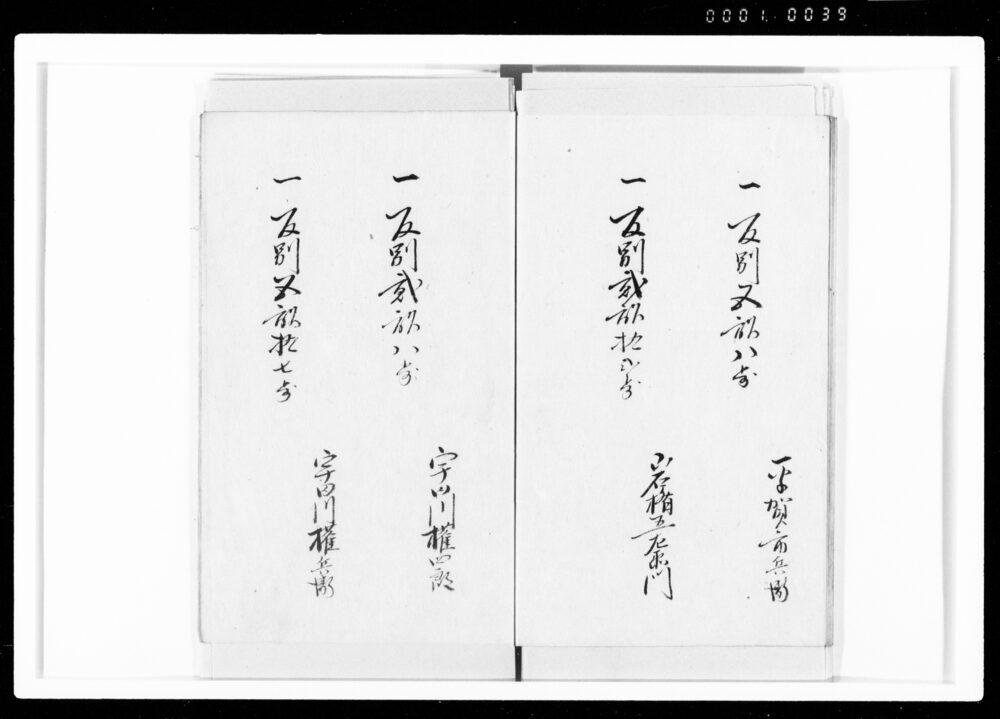 0001. 0039
一 反別五畝八歩
平賀市兵衛
一 反別貳畝拾歩
岩楯五左衛門
一 反別貳畝八歩
宇田川權四郎
一 反別五畝拾七歩
宇田川權兵衛